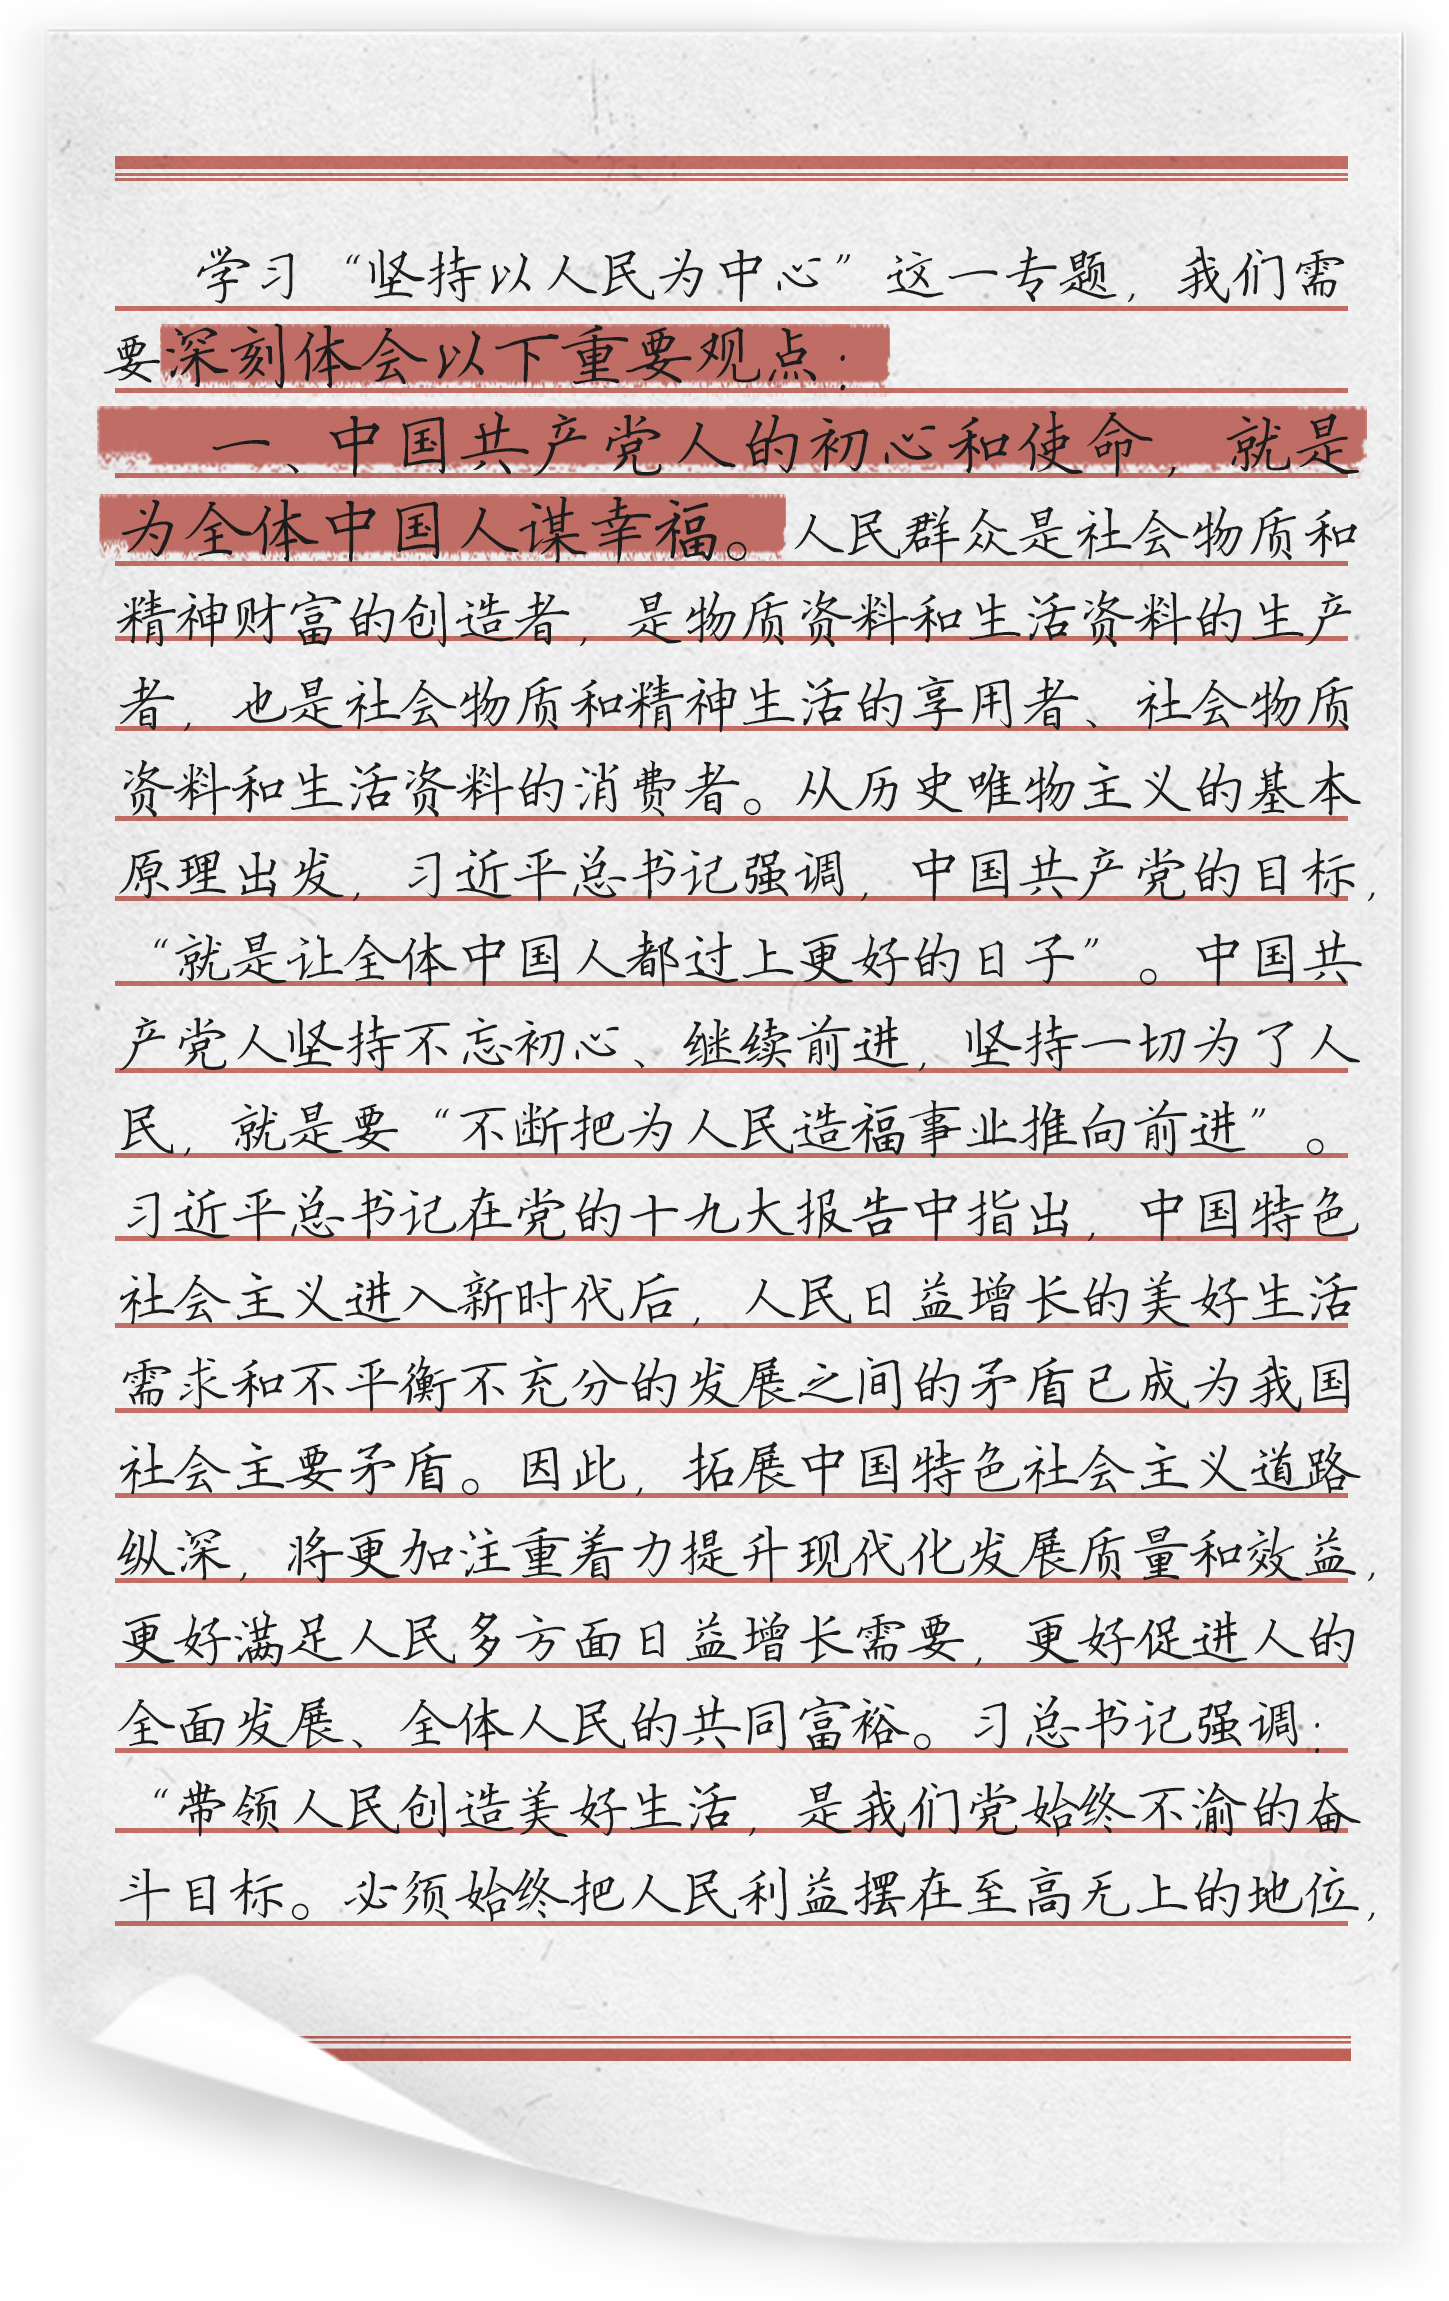 学习“坚持以人民为中心”这一专题，我们需
要深刻体会以下重要观点：
一、中国共产党人的初心和使命，就是
为全体中国人谋幸福。人民群众是社会物质和
精神财富的创造者，是物质资料和生活资料的生产
者，也是社会物质和精神生活的享用者、社会物质
资料和生活资料的消费者。从历史唯物主义的基本
原理出发，习近平总书记强调，中国共产党的目标，
“就是让全体中国人都过上更好的日子”。中国共
产党人坚持不忘初心、继续前进，坚持一切为了人
民，就是要“不断把为人民造福事业推向前进”。
习近平总书记在党的十九大报告中指出，中国特色
社会主义进入新时代后，人民日益增长的美好生活
需求和不平衡不充分的发展之间的矛盾已成为我国
社会主要矛盾。因此，拓展中国特色社会主义道路
纵深，将更加注重着力提升现代化发展质量和效益，
更好满足人民多方面日益增长需要，更好促进人的
全面发展、全体人民的共同富裕。习总书记强调：
“带领人民创造美好生活，是我们党始终不渝的奋
斗目标。必须始终把人民利益摆在至高无上的地位，